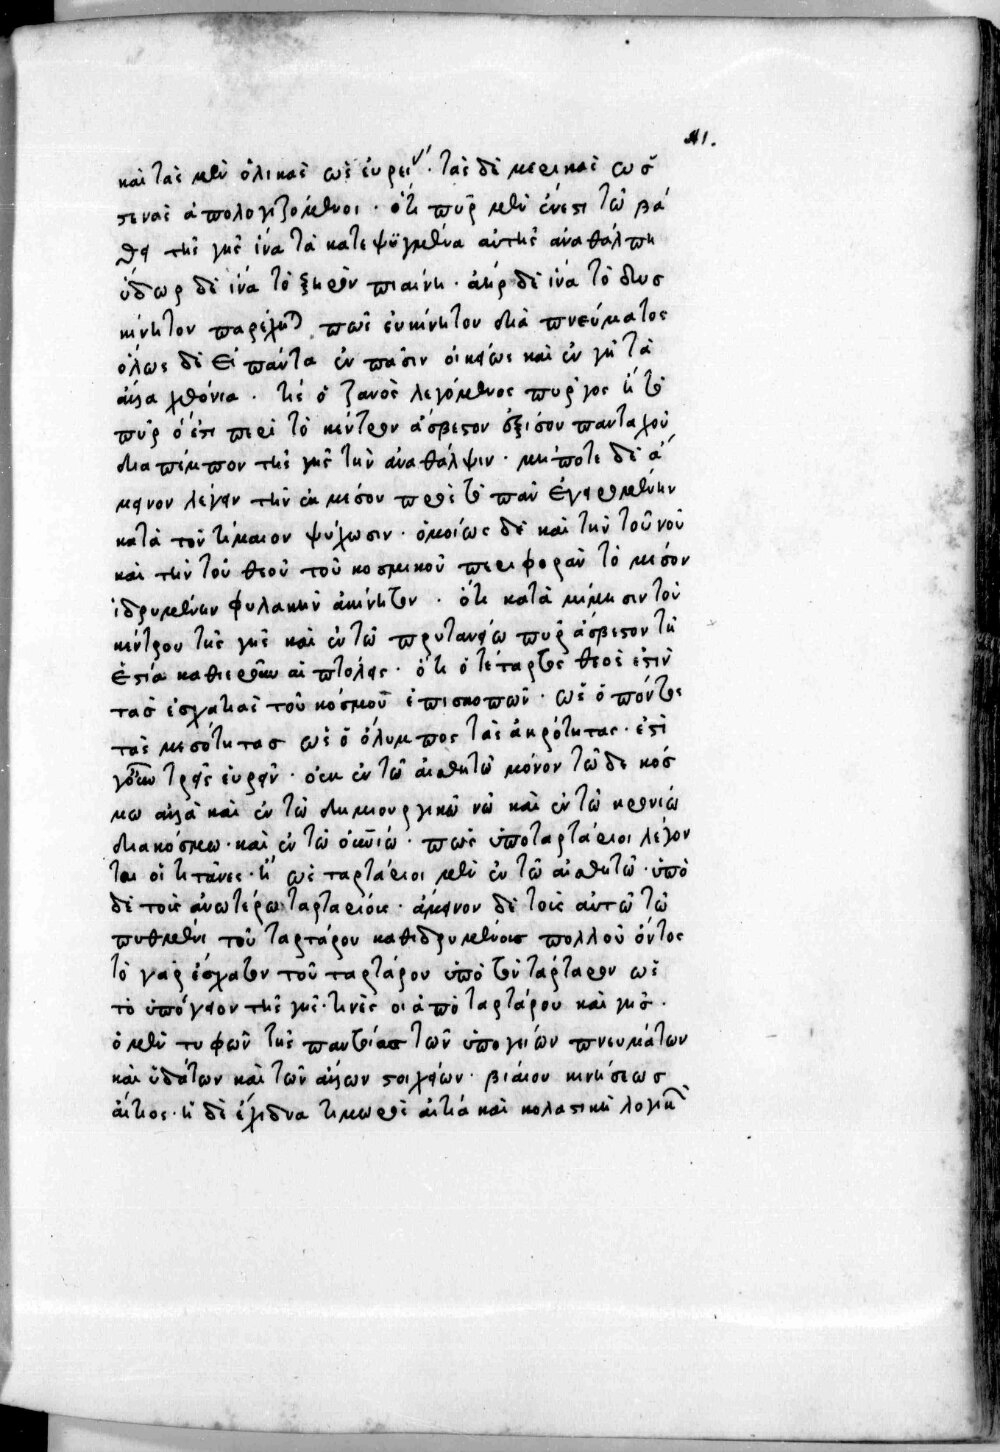 41.
καὶ τὰς μὲν ὁλικὰς ὡς εὑρεῖν· τὰς δὲ μερικὰς ὡς
στενὰς ἀπολογιζόμενοι· ὅτι πῦρ μὲν ἔνεστι τῷ βά
θει τῆς γῆς ἵνα τὰ κατεψυγμένα αὐτῆς ἀναθάλπη
ὕδωρ δὲ ἵνα τὸ ξηρὸν πιαίνη· ἀὴρ δὲ ἵνα τὸ δυσ
κίνητον παρέχη πως εὐκίνητον διὰ πνεύματος
ὅλως δὲ εἰ πάντα ἐν πᾶσιν οἰκείως καὶ ἐν γῆ τὰ
ἄλλα χθόνια· τίς ὁ ζανὸς λεγόμενος πύργος ἢ τὸ
πῦρ ὅ ἐστι περὶ τὸ κέντρον ἄσβεστον ἐξ ἴσου πανταχοῦ
διαπέμπον τῆς γῆς τὴν ἀναθάλψιν· μήποτε δὲ ἄ
μεινον λέγειν τὴν ἐκ μέσου πρὸς τὸ πᾶν ἐγειρομένην
κατὰ τὸν τίμαιον ψύχωσιν· ὁμοίως δὲ καὶ τὴν τοῦ νοῦ
καὶ τὴν τοῦ θεοῦ τοῦ κοσμικοῦ περιφορὰν τὸ μέσον
ἱδρυμένην φυλακὴν ἀκίνητον· ὅτι κατὰ μίμησιν τοῦ
κέντρου τῆς γῆς καὶ ἐν τῷ πρυτανείω πῦρ ἄσβεστον τῆ
ἑστία καθιεροῦσιν αἱ πτόλεις· ὅτι ὁ τέταρτος θεὸς ἐστὶν
τὰς ἐσχατιὰς τοῦ κόσμου ἐπισκοπῶν· ὡς ὁ πόντος
τὰς μεσότητας ὡς ὁ ὄλυμπος τὰς ἀκρότητας· ἐστὶ
γοῦν τρεῖς εὑρεῖν· οὐκ ἐν τῷ αἰσθητῷ μόνον τῷδε κόσ
μω ἀλλὰ καὶ ἐν τῷ δημιουργικῷ νῷ καὶ ἐν τῷ κρονίω
διακόσμω· καὶ ἐν τῷ οὐρανίω· πῶς ὑποταρτάριοι λέγον
ται οἱ τιτᾶνες· ἢ ὡς ταρτάριοι μὲν ἐν τῷ αἰσθητῷ· ὑπὸ
δὲ τοῖς ἀνωτέρω ταρταρίοις· ἄμεινον δὲ τοῖς αὐτῷ τῷ
πυθμένι τοῦ ταρτάρου καθιδρυμένοις πολλοῦ ὄντος
τὸ γὰρ ἔσχατον τοῦ ταρτάρου ὑπὸ τὸν τάρταρον ὡς
τὸ ὑπόγειον τῆς γῆς· τίνες οἱ ἀπὸ ταρτάρου καὶ γῆς·
ὁ μὲν τυφῶν τῆς παντοίας τῶν ὑπογείων πνευμάτων
καὶ ὑδάτων καὶ τῶν ἄλλων στοιχείων· βιαίου κινήσεως
αἴτιος· ἡ δὲ ἔχιδνα τιμωρὸς αἰτία καὶ κολαστικὴ λογικῶν